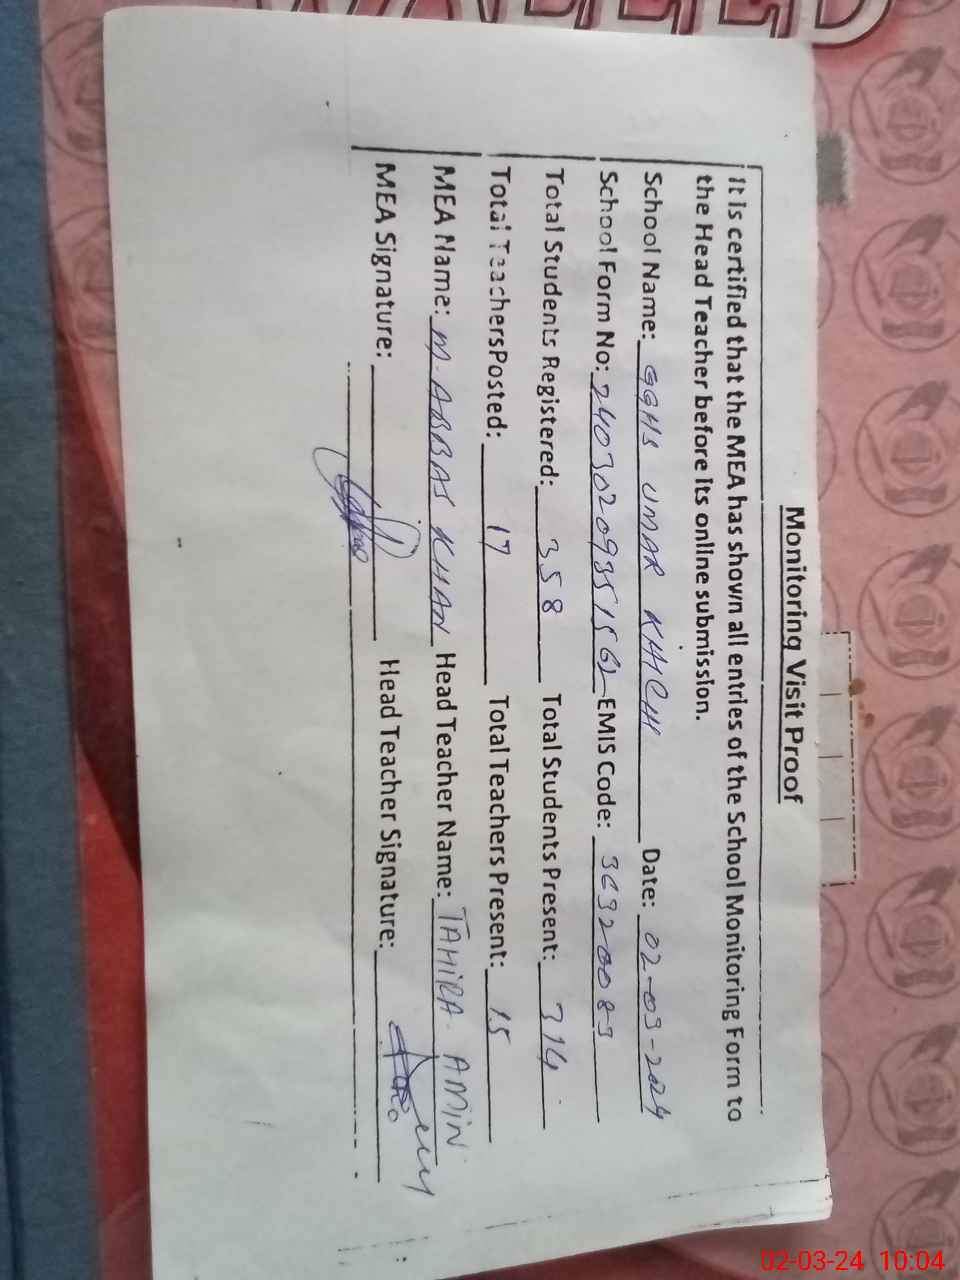 Monitoring Visit Proof
It is certified that the MEA has shown all entries of the School Monitoring Form to
the Head Teacher before its online submission.
School Name: GGHS UMAR KHICHI Date: 02-03-2024
School Form No: 24030209351562 EMIS Code: 36320083
Total Students Registered: 358 Total Students Present: 314
Total TeachersPosted: 17 Total Teachers Present: 15
MEA Name: M. ABBAS KHAN Head Teacher Name: TAHIRA. AMIN
MEA Signature: Head Teacher Signature:
02-03-24 10:04